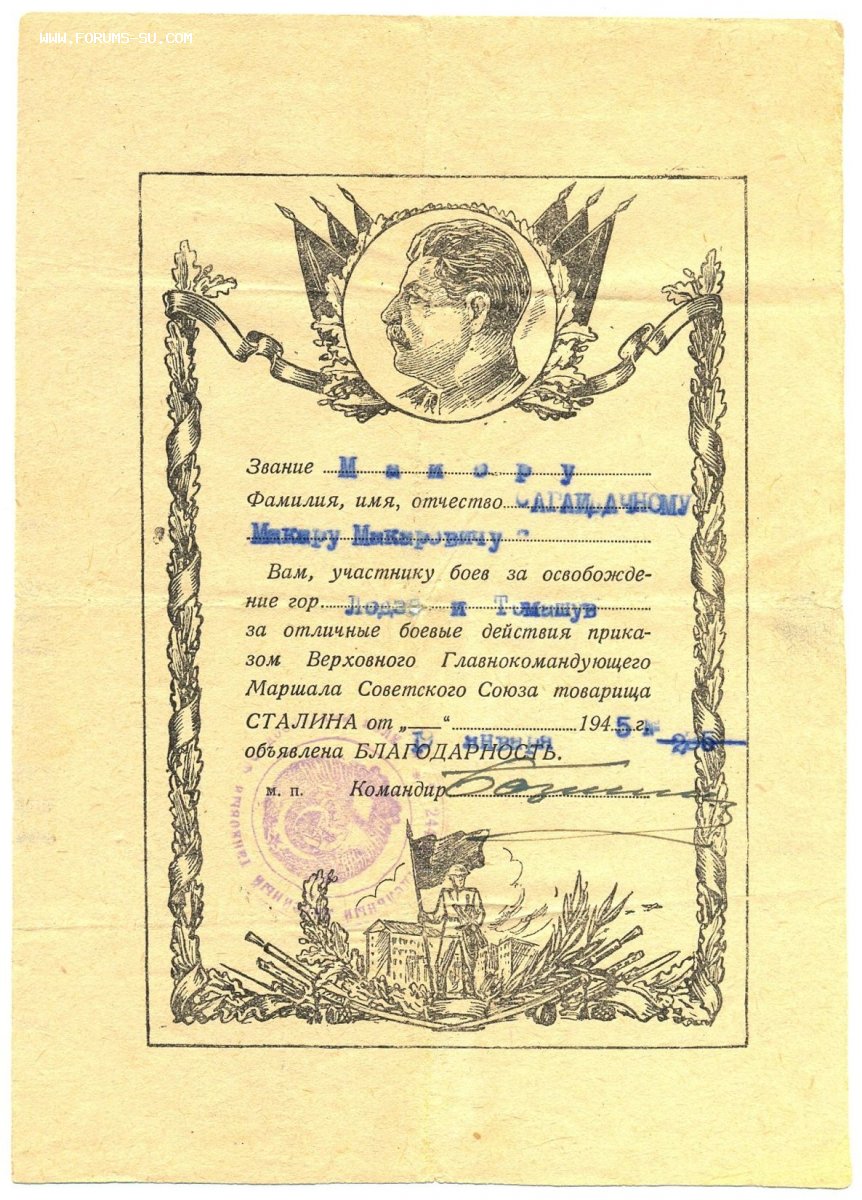 WWW.FORUMS-SU.COM
Звание Майору
Фамилия, имя, отчество САГАЙДАЧНОМУ
Макару Макаровичу
Вам, участнику боев за освобожде-
ние гор. Лодзь и Томашув
за отличные боевые действия прика-
зом Верховного Главнокомандующего
Маршала Советского Союза товарища
СТАЛИНА от „ “ января 1945 г.
объявлена БЛАГОДАРНОСТЬ.
м. п. Командир
танковый